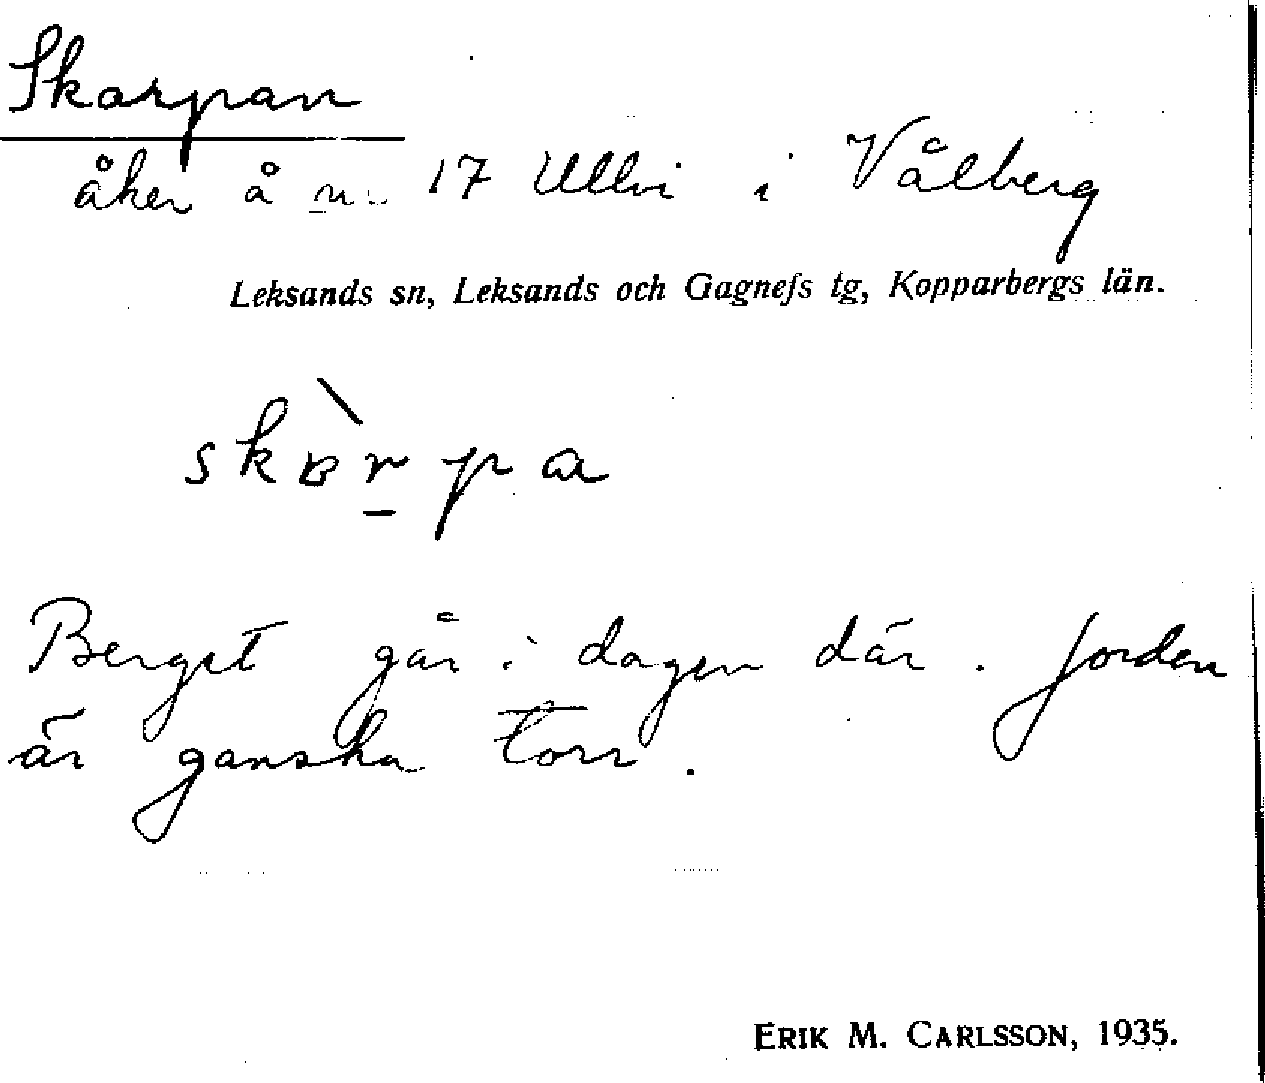 Skarpan
åker å nr. 17 Ullvi i Vålberg
Leksands sn, Leksands och Gagnefs tg, Kopparbergs län.
skɒ̀r̠pa
Berget går i dagen där. Jorden
är ganska torr.
ERIK M. CARLSSON, 1935.